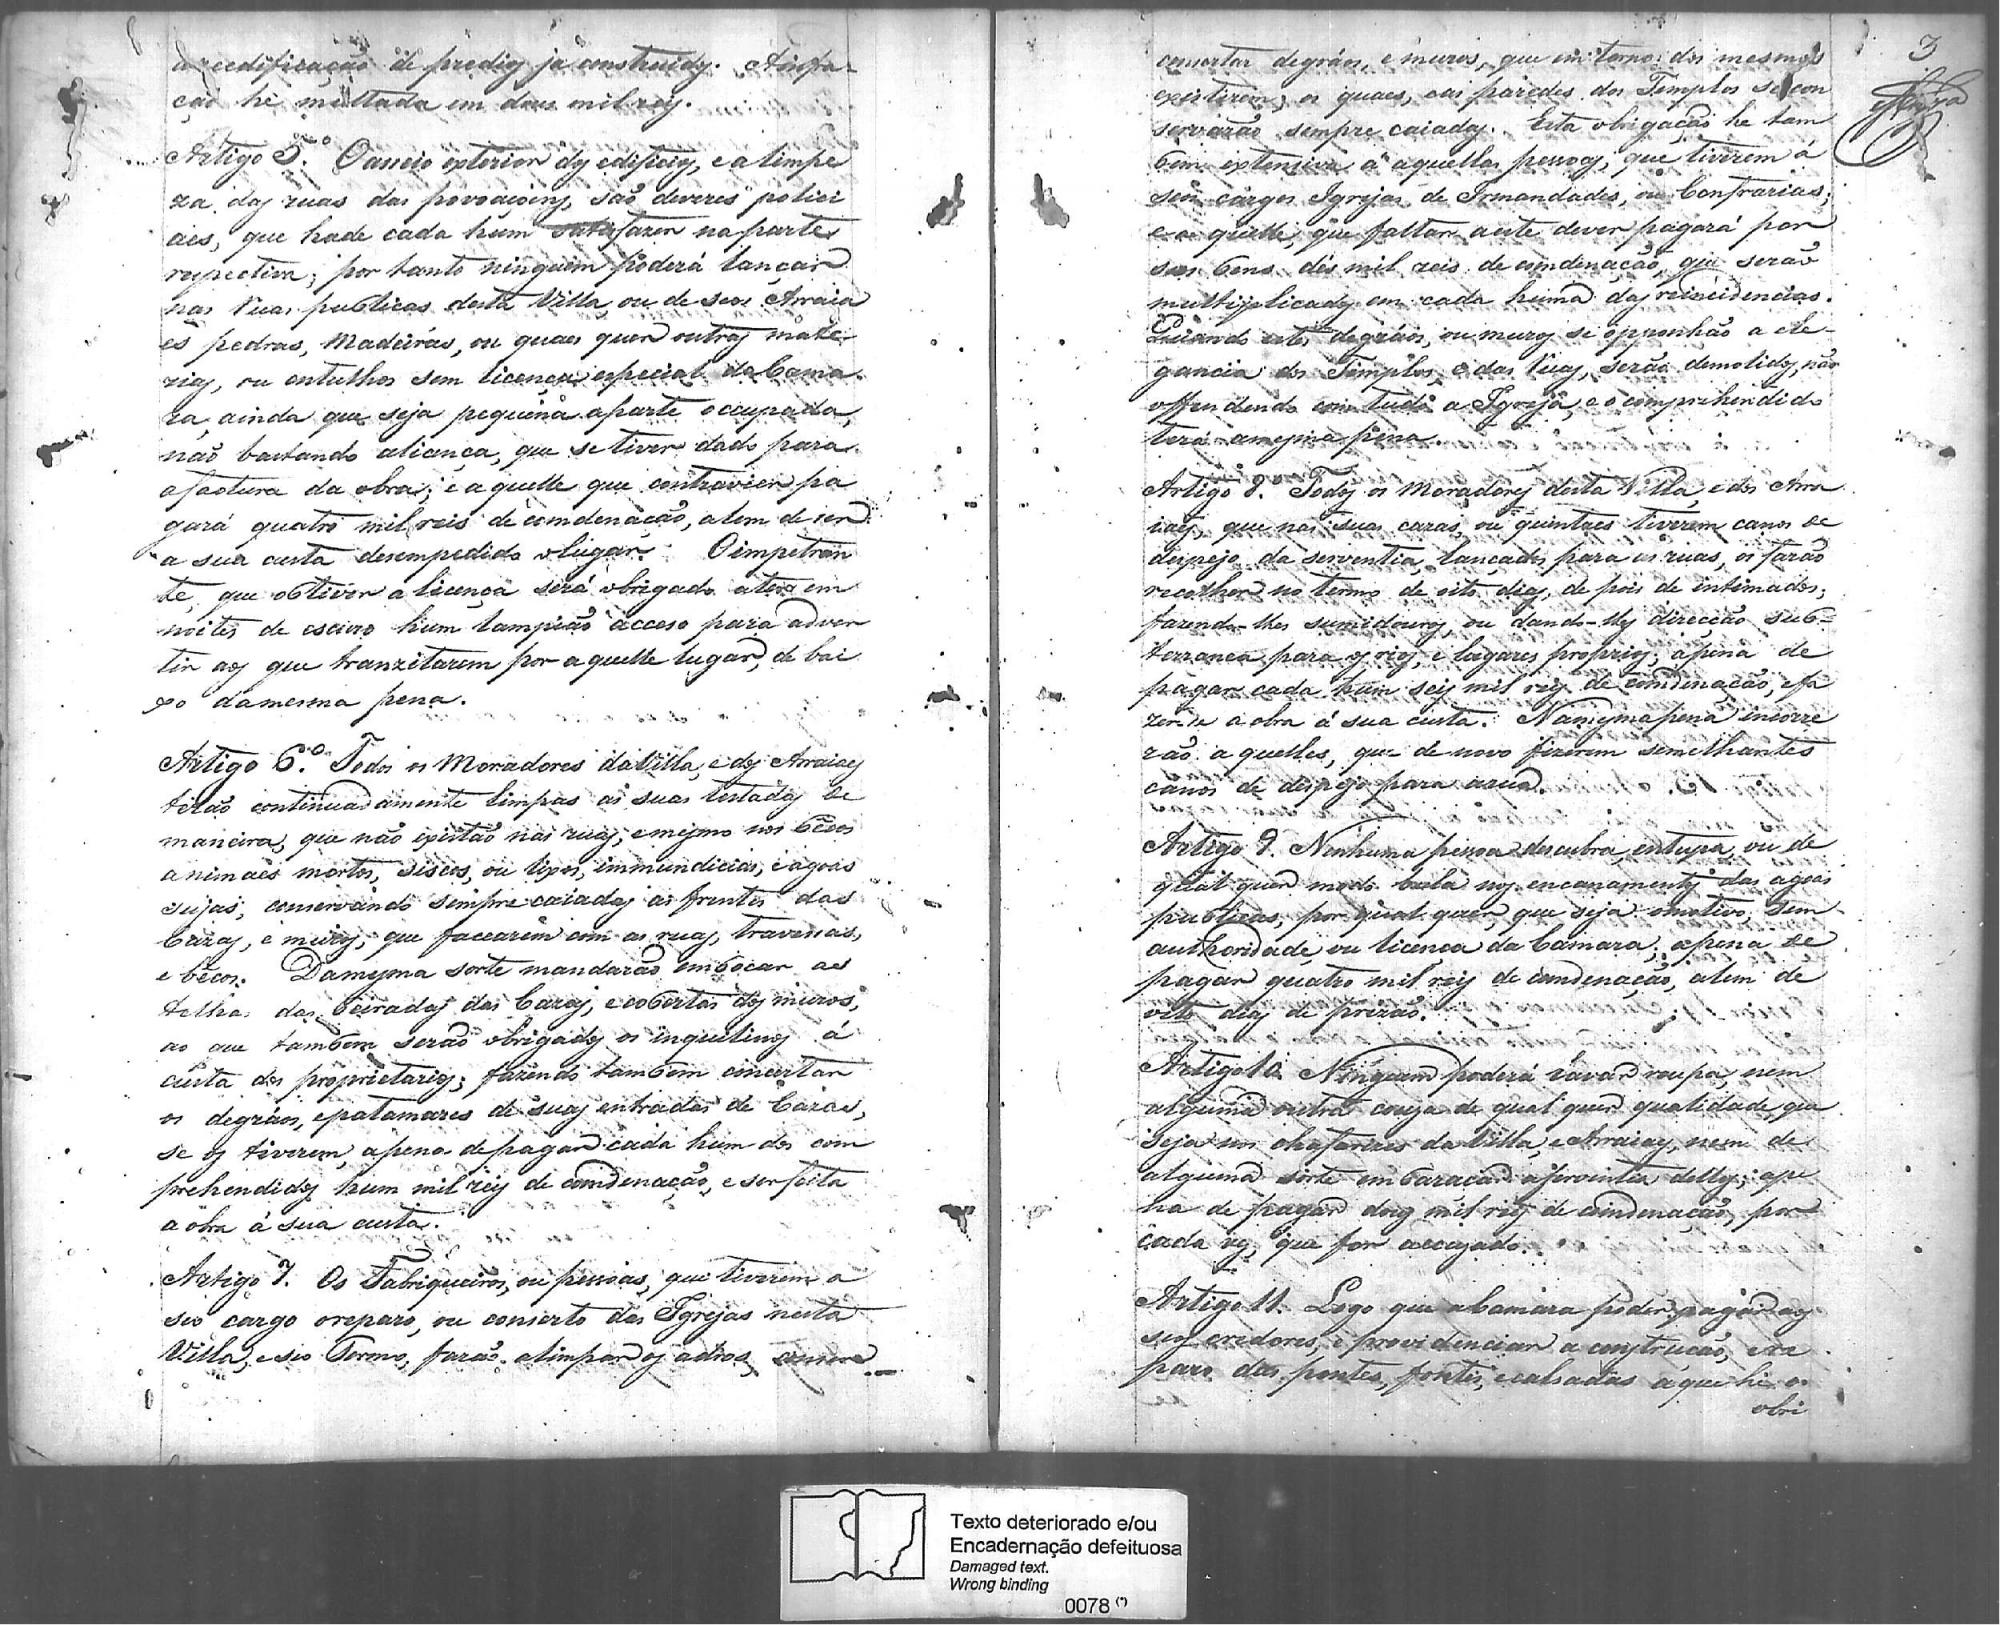 a reedificação de predios já construidos. A infra-
ção he multada em dous mil reis.
Artigo 5.º O aceio exterior dos edificios, e a limpe
za das ruas das povoaçoens, são deveres polici
aes, que hade cada hum satisfazer na parte
respectiva; por tanto ninguem poderá lançar
nas ruas publicas desta Villa, ou de seos Arraia
es pedras, madeiras, ou quaes quer outros mate
riaes, ou entulhos sem licença especial da Cama
ra, ainda que seja pequena aparte occupada,
não bastando aliança, que se tiver dado para
afactura da obra; e aquelle que contravier pa
gará quatro mil reis de comdenação, alem de ser
a sua custa desempedido olugar. O impetran
te, que obtiver a licença será obrigado ater em
noites de escuro hum lampião acceso para adver
tir aos que tranzitarem por aquelle lugar, de bai
xo damesma pena.
Artigo 6.º Todos os Moradores da Villa, e dos Arraiaes
terão continuadamente limpas as suas testadas de
maneira, que não existão nas ruas, e mesmo nos bêcos
animaes mortos, siscos, ou lixos, immundicias, e agoas
sujas, conservando sempre caiadas as frentes das
Cazas, e muros, que facearem com as ruas, travessas,
e bêcos. Damesma sorte mandarão embocar as
telhas das beiradas das Cazas, e cobertas dos muros,
ao que tambem serão obrigados os inquilinos á
custa dos proprietarios; fazendo tambem concertar
os degráos, epatamares de suas entradas de Cazas,
se os tiverem, apena de pagar cada hum dos com
prehendidos hum mil reis de comdenação, e ser feita
a obra á sua custa.
Artigo 7. Os Fabriqueiros, ou pessoas, que tiverem a
seo cargo oreparo, ou conserto das Igrejas nesta
Villa, e seo Termo, farão alimpar os adros,
3
concertar degráos, e muros, que em torno dos mesmos
existirem; os quaes, e as paredes dos Templos secon
servarão sempre caiados. Esta obrigação he tam
bem extensiva á aquellas pessoas, que tiverem á
seu cargo Igrejas de Irmandades, ou Confrarias;
e a quelle, que faltar aeste dever pagará por
seos bens dés mil reis de comdenação, que serão
multiplicados em cada huma das reincidencias.
Quando estes degráos, ou muros se opponhão a ele-
gancia dos Templos, e das ruas, serão demolidos, não
offendendo com tudo a Igreja, e o comprehendido
terá amesma pena.
Artigo 8.º Todos os Moradores desta Villa, e dos Arra
iaes, que nas suas cazas, ou quintaes tiverem canos de
despejo da serventia, lançados para as ruas, os farão
recolher no termo de oito dias, de pois de intimados;
fazendo-lhes sumidouros, ou dando-lhes direcção sub-
terranea para os rios, e lugares proprios, apena de
pagar cada hum seis mil reis de comdenação, efa
zer-se a obra á sua custa. Namesma pena incorre
rão aquelles, que de novo fizerem semelhantes
canos de despejo para arua.
Artigo 9. Nenhuma pessoa descubra, entupa, ou de
qual quer modo bula nos encanamentos das agoas
publicas, por qual quer, que seja omotivo, sem
authoridade, ou licença da Camara; apena de
pagar quatro mil reis de comdenação, alem de
oito dias de prizão.
Artigo 10. Ninguem poderá lavar roupa, nem
alguma outra couza de qual quer qualidade que
seja nos chafarizes da Villa, e Arraiaes, nem de
alguma sorte embaraçar aserventia delles; ape
na de pagar dous mil reis de comdenação, por
cada vez, que for accuzado.
Artigo 11. Logo que aCamara poder pagar aos
seos credores, e providenciar a construcção, e re
paro das pontes, fontes, e calsadas áque he o
obri
Texto deteriorado e/ou
Encadernação defeituosa
Damaged text.
Wrong binding
0078 (*)